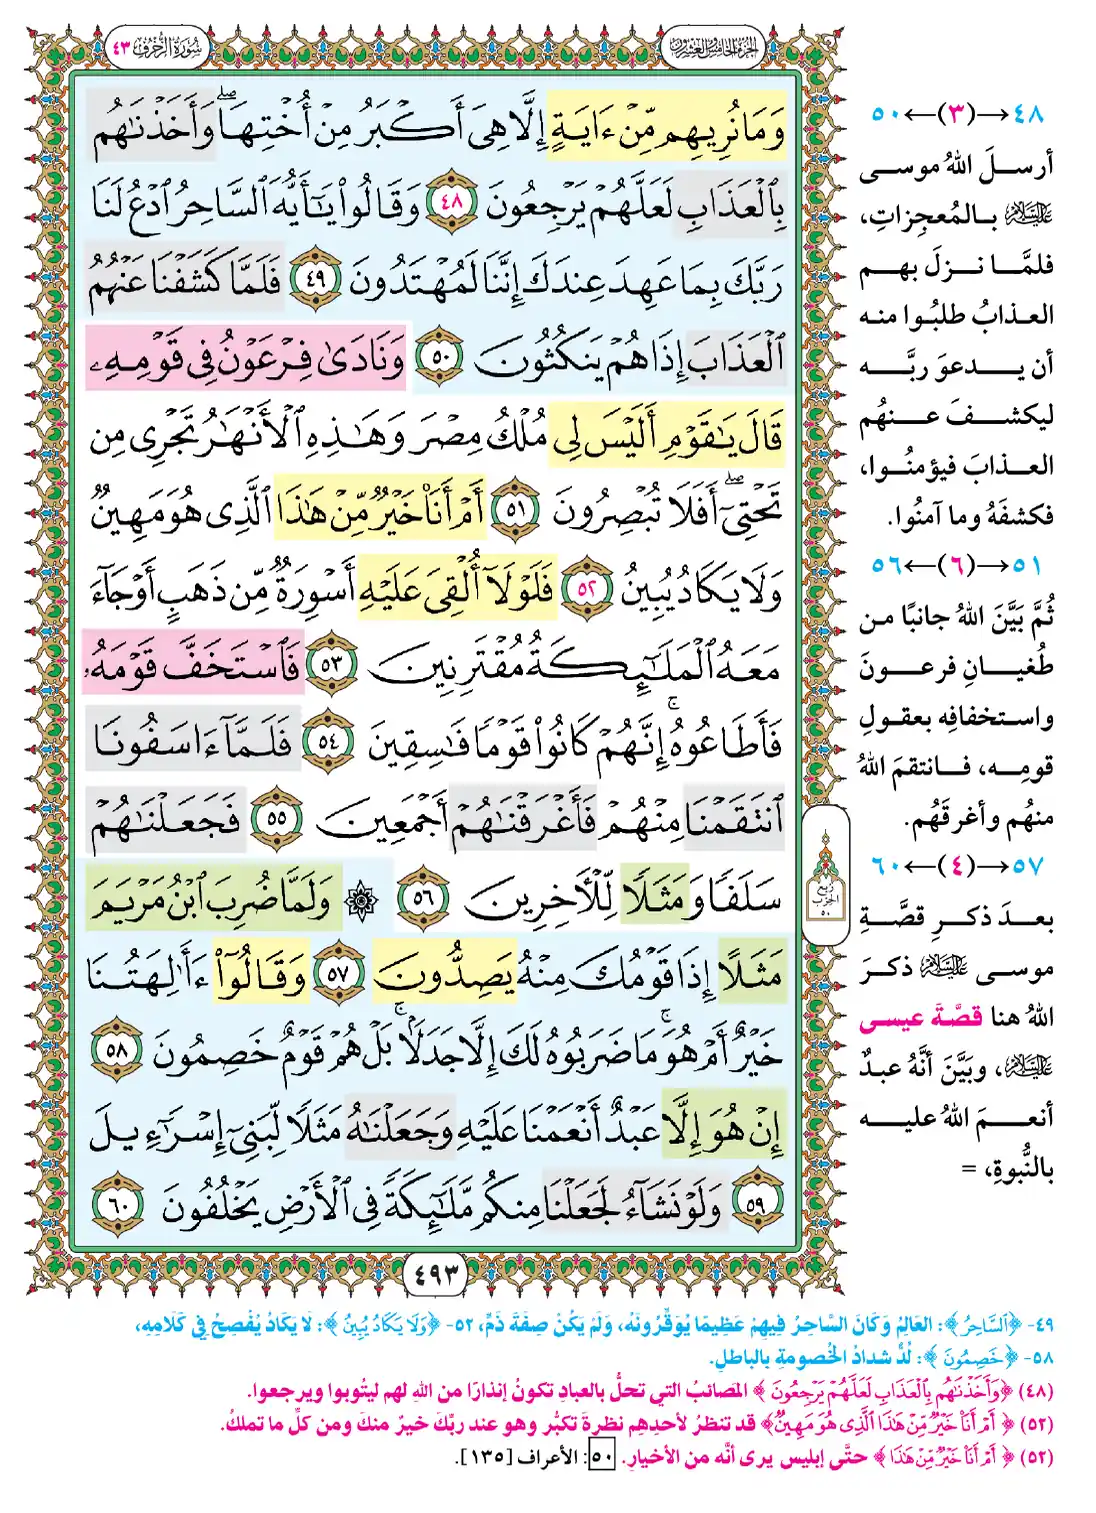 الجزء الخامس والعشرون
سورة الزخرف ٤٣
وَمَا نُرِيهِم مِّنْ ءَايَةٍ إِلَّا هِىَ أَكْبَرُ مِنْ أُخْتِهَا ۖ وَأَخَذْنَٰهُم
بِٱلْعَذَابِ لَعَلَّهُمْ يَرْجِعُونَ ٤٨ وَقَالُوا۟ يَٰٓأَيُّهَ ٱلسَّاحِرُ ٱدْعُ لَنَا
رَبَّكَ بِمَا عَهِدَ عِندَكَ إِنَّنَا لَمُهْتَدُونَ ٤٩ فَلَمَّا كَشَفْنَا عَنْهُمُ
ٱلْعَذَابَ إِذَا هُمْ يَنكُثُونَ ٥٠ وَنَادَىٰ فِرْعَوْنُ فِى قَوْمِهِۦ
قَالَ يَٰقَوْمِ أَلَيْسَ لِى مُلْكُ مِصْرَ وَهَٰذِهِ ٱلْأَنْهَٰرُ تَجْرِى مِن
تَحْتِىٓ ۖ أَفَلَا تُبْصِرُونَ ٥١ أَمْ أَنَا۠ خَيْرٌ مِّنْ هَٰذَا ٱلَّذِى هُوَ مَهِينٌ
وَلَا يَكَادُ يُبِينُ ٥٢ فَلَوْلَآ أُلْقِىَ عَلَيْهِ أَسْوِرَةٌ مِّن ذَهَبٍ أَوْ جَآءَ
مَعَهُ ٱلْمَلَٰٓئِكَةُ مُقْتَرِنِينَ ٥٣ فَٱسْتَخَفَّ قَوْمَهُۥ
فَأَطَاعُوهُ ۚ إِنَّهُمْ كَانُوا۟ قَوْمًا فَٰسِقِينَ ٥٤ فَلَمَّآ ءَاسَفُونَا
ٱنتَقَمْنَا مِنْهُمْ فَأَغْرَقْنَٰهُمْ أَجْمَعِينَ ٥٥ فَجَعَلْنَٰهُمْ
سَلَفًا وَمَثَلًا لِّلْءَاخِرِينَ ٥٦ ۞ وَلَمَّا ضُرِبَ ٱبْنُ مَرْيَمَ
مَثَلًا إِذَا قَوْمُكَ مِنْهُ يَصِدُّونَ ٥٧ وَقَالُوٓا۟ ءَأَٰلِهَتُنَا
خَيْرٌ أَمْ هُوَ ۚ مَا ضَرَبُوهُ لَكَ إِلَّا جَدَلًۢا ۚ بَلْ هُمْ قَوْمٌ خَصِمُونَ ٥٨
إِنْ هُوَ إِلَّا عَبْدٌ أَنْعَمْنَا عَلَيْهِ وَجَعَلْنَٰهُ مَثَلًا لِّبَنِىٓ إِسْرَٰٓءِيلَ
٥٩ وَلَوْ نَشَآءُ لَجَعَلْنَا مِنكُم مَّلَٰٓئِكَةً فِى ٱلْأَرْضِ يَخْلُفُونَ ٦٠
٤٩٣
ربع
الحزب
٥٠
٤٨→(٣)←٥٠
أرسلَ اللهُ موسى
عليه السلام بالمُعجِزاتِ،
فلمَّا نزلَ بهم
العذابُ طلبُوا منه
أن يدعوَ ربَّه
ليكشفَ عنهُم
العذابَ فيؤمنُوا،
فكشفَهُ وما آمنُوا.
٥١→(٦)←٥٦
ثُمَّ بيَّنَ اللهُ جانبًا من
طُغيانِ فرعونَ
واستخفافِه بعقولِ
قومِه، فانتقمَ اللهُ
منهُم وأغرقَهُم.
٥٧→(٤)←٦٠
بعدَ ذكرِ قصَّةِ
موسى عليه السلام ذكرَ
اللهُ هنا قصَّةَ عيسى
عليه السلام، وبيَّنَ أنَّهُ عبدٌ
أنعمَ اللهُ عليه
بالنُّبوةِ، =
٤٩- ﴿ٱلسَّاحِرُ﴾: العَالِمُ وَكَانَ السَّاحِرُ فِيهِمْ عَظِيمًا يُوَقِّرُونَهُ، وَلَمْ يَكُنْ صِفَةَ ذَمٍّ، ٥٢- ﴿وَلَا يَكَادُ يُبِينُ﴾: لَا يَكَادُ يُفْصِحُ فِي كَلَامِهِ،
٥٨- ﴿خَصِمُونَ﴾: لُدٌّ شدادُ الخُصومةِ بالباطلِ.
(٤٨) ﴿وَأَخَذْنَٰهُم بِٱلْعَذَابِ لَعَلَّهُمْ يَرْجِعُونَ﴾ المَصائبُ التي تحلُّ بالعبادِ تكونُ إنذارًا من اللهِ لهم ليتُوبوا ويرجعوا.
(٥٢) ﴿أَمْ أَنَا۠ خَيْرٌ مِّنْ هَٰذَا ٱلَّذِى هُوَ مَهِينٌ﴾ قد تنظرُ لأحدِهِم نظرةَ تكبُّر وهو عند ربِّكَ خيرٌ منكَ ومن كلِّ ما تملكُ.
(٥٢) ﴿أَمْ أَنَا۠ خَيْرٌ مِّنْ هَٰذَا﴾ حتَّى إبليس يرى أنَّه من الأخيارِ. ٥٠: الأعراف [١٣٥].